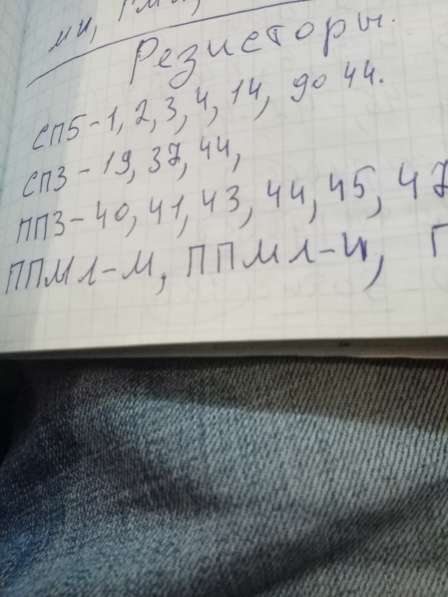 ми, РМ
Резисторы.
СП5-1, 2, 3, 4, 14, до 44.
СП3-19, 37, 44,
ПП3-40, 41, 43, 44, 45, 47
ППМЛ-М, ППМЛ-И, Г